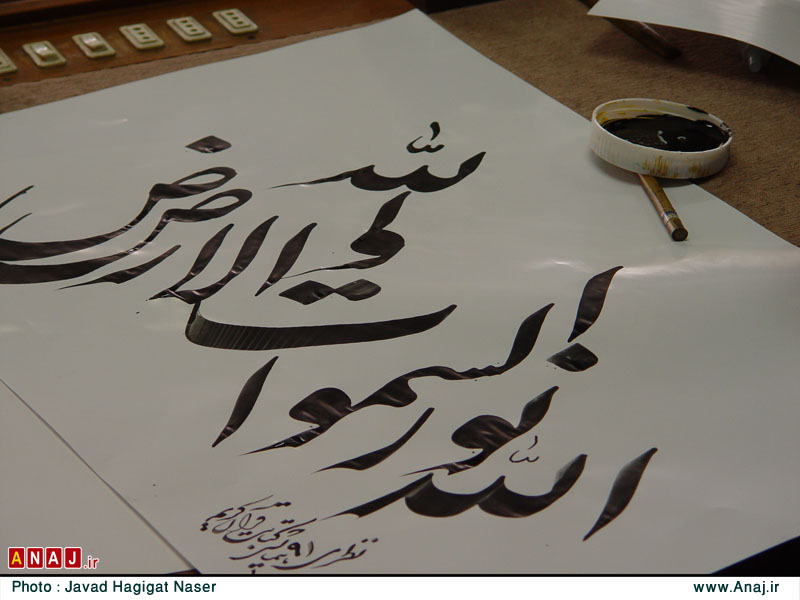 الله نور
السموات
و الارض
نظری ۹۱
قرآن کریم
ANAJ.ir
Photo : Javad Hagigat Naser
www.Anaj.ir